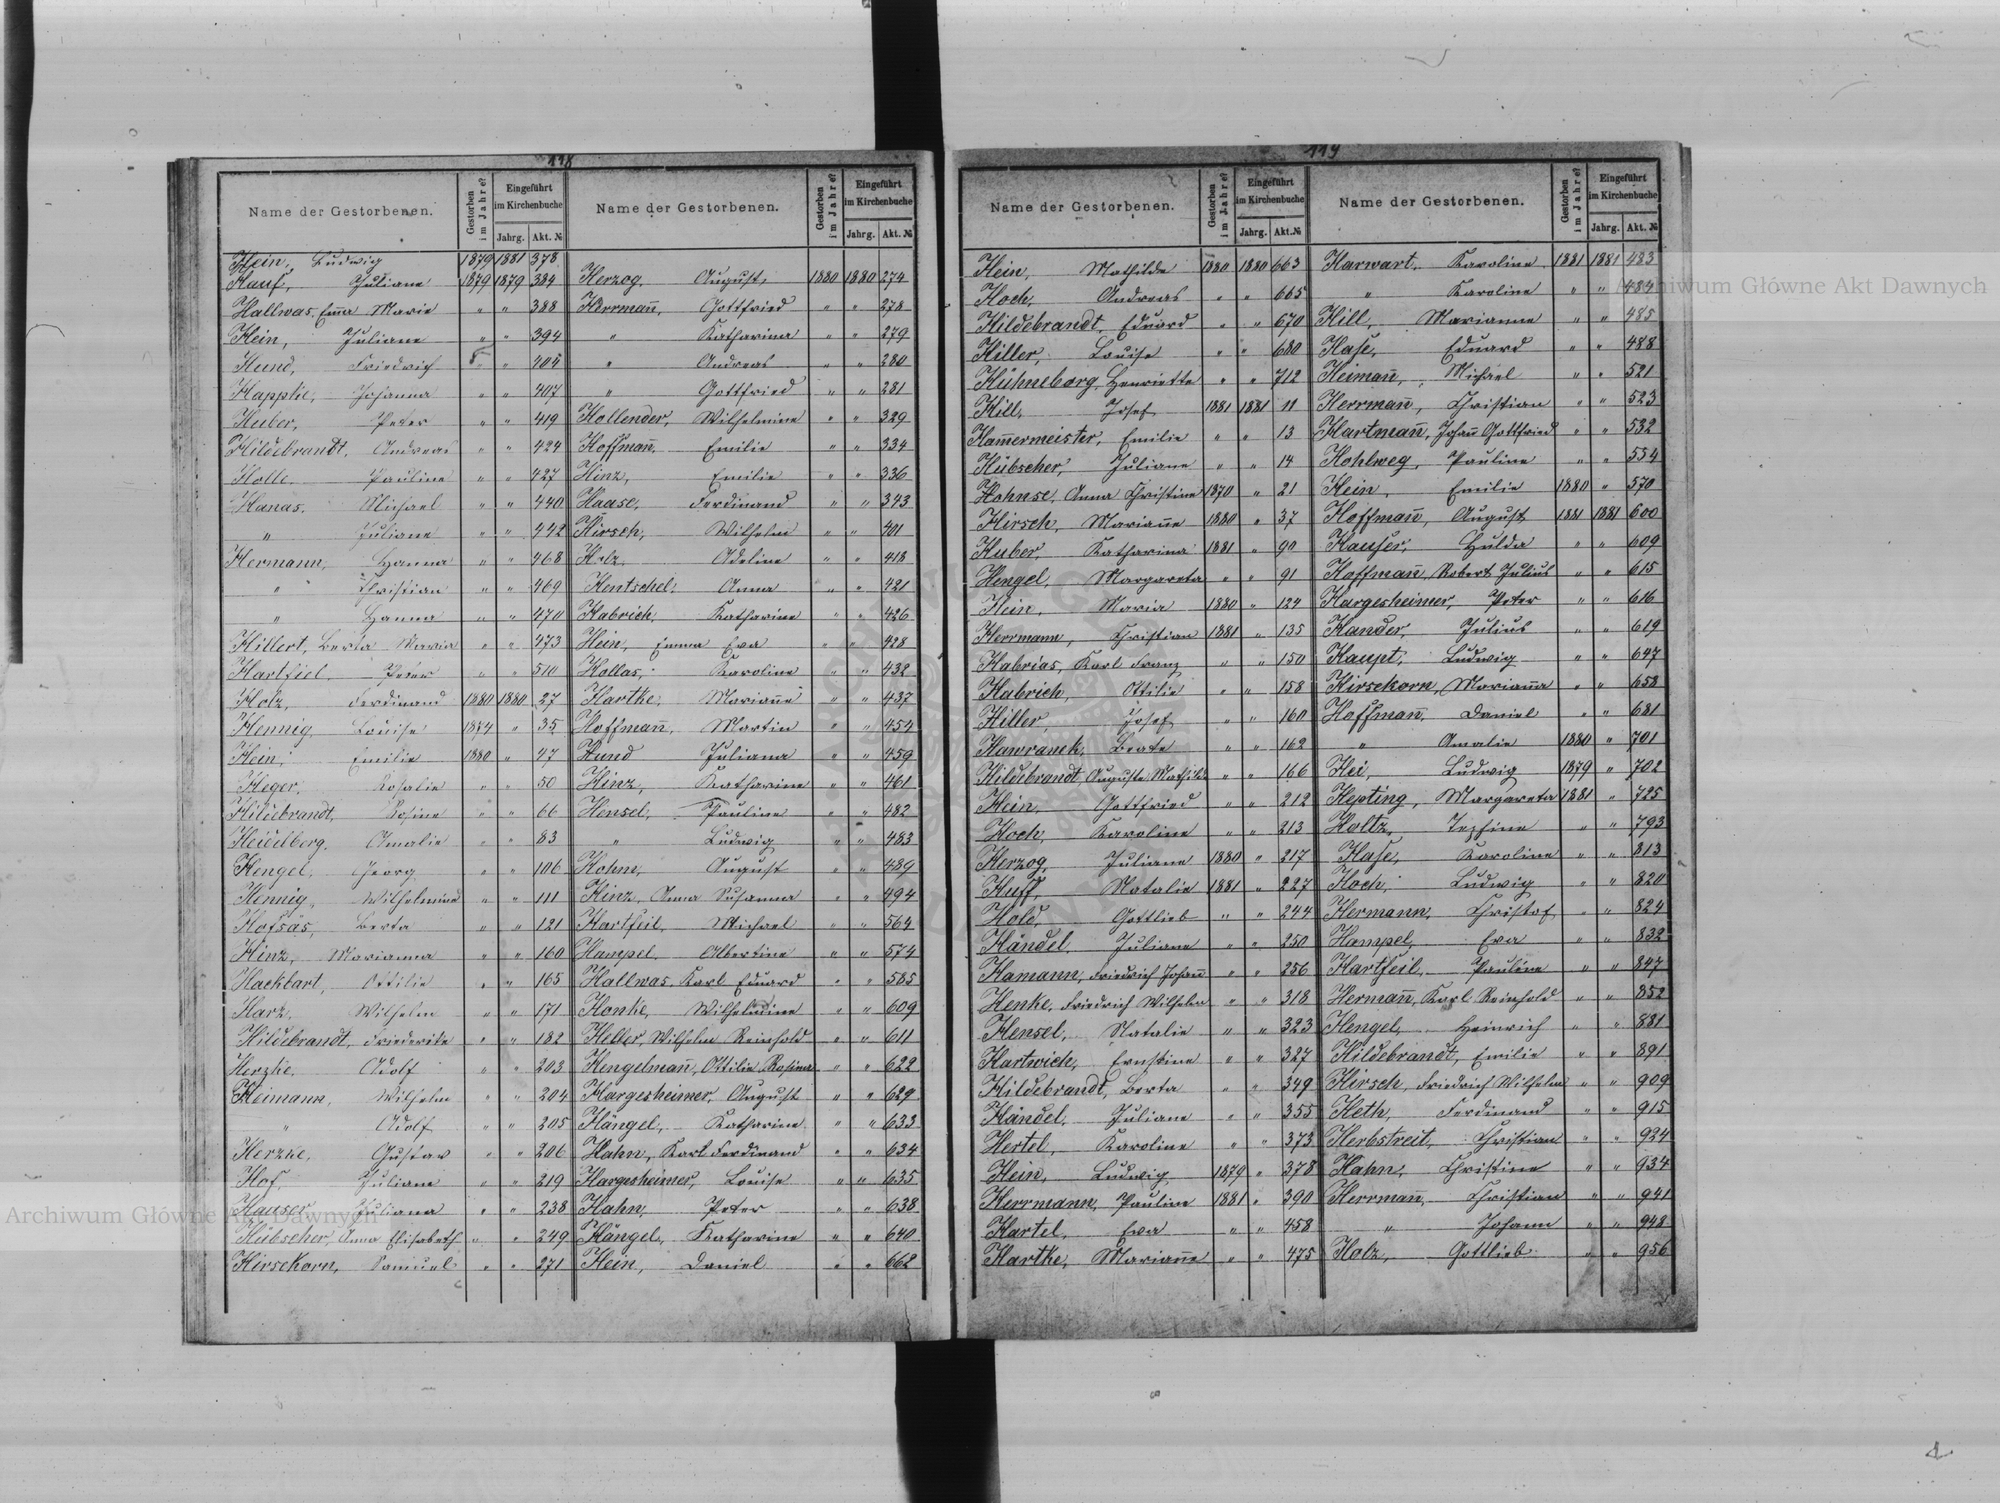 118
Name der Gestorbenen. Gestorben im Jahre? Eingeführt im Kirchenbuche Jahrg. Akt. №
Hein, Ludwig 1879 1881 378
Hauf, Juliane 1879 1879 384
Hallwas, Emma Marie " " 388
Hein, Juliane " " 394
Hund, Friedrich " " 405
Happke, Johanna " " 417
Huber, Peter " " 419
Hildebrandt, Andreas " " 424
Holle Pauline " " 427
Hanas, Michael " " 440
" Juliane " " 442
Hermann, Hanna " " 468
" Christian " " 469
" Hanna " " 470
Hillert, Berta Maria " " 473
Hartfiel Peter " " 510
Holz, Ferdinand 1880 1880 27
Hennig, Louise 1874 " 35
Hein, Emilie 1880 " 47
Heger, Rosalie " " 50
Hildebrandt, Rosine " " 66
Heidelberg, Amalie " " 83
Hengel, Georg " " 106
Hennig, Wilhelmine " " 111
Hofsäs, Berta " " 121
Hinz, Marianna " " 160
Hackbart, Ottilie " " 165
Harz, Wilhelm " " 171
Hildebrandt, Friederike " " 182
Herzke, Adolf " " 203
Heimann, Wilhelm " " 204
" Adolf " " 205
Herzke, Gustav " " 206
Hof, Juliane " " 219
Hauser, Juliana " " 238
Hübscher, Anna Elisabeth " " 249
Hirsekorn, Samuel " " 271
Name der Gestorbenen. Gestorben im Jahre? Eingeführt im Kirchenbuche Jahrg. Akt. №
Herzog, August 1880 1880 274
Herrman̄, Gottfried " " 278
" Katharina " " 279
" Andreas " " 280
" Gottfried " " 281
Hollender, Wilhelmine " " 329
Hoffman̄, Emilie " " 334
Hinz, Emilie " " 336
Haase, Ferdinand " " 343
Hirsch, Wilhelm " " 401
Holz, Adeline " " 418
Hentschel, Anna " " 421
Habrich, Katharine " " 426
Hein, Emma Eva " " 428
Hollas, Karoline " " 432
Hartke, Marian̄e " " 437
Hoffman̄, Martin " " 454
Hund Juliana " " 459
Hinz, Katharine " " 461
Hensel, Pauline " " 482
" Ludwig " " 483
Hohm, August " " 489
Hinz, Anna Susanna " " 494
Hartfeil, Michael " " 564
Hampel, Albertine " " 574
Hallwas, Karl Eduard " " 585
Honke, Wilhelmine " " 609
Heller, Wilhelm Reinhold " " 611
Hengelman̄, Ottilie Rosina " " 622
Hargesheimer, August " " 629
Hängel, Katharine " " 633
Hahn, Karl Ferdinand " " 634
Hargesheimer, Louise " " 635
Hahn, Peter " " 638
Hängel, Katharine " " 640
Hein, Daniel " " 662
119
Name der Gestorbenen. Gestorben im Jahre? Eingeführt im Kirchenbuche Jahrg. Akt. №
Hein, Mathilde 1880 1880 663
Hoch, Andreas " " 665
Hildebrandt, Eduard " " 670
Hiller, Louise " " 680
Hühneborg, Henriette " " 712
Hill, Josef 1881 1881 11
Ham̄ermeister, Emilie " " 13
Hübscher, Juliane " " 14
Hohnse, Anna Christine 1870 " 21
Hirsch, Marian̄e 1880 " 37
Huber, Katharina 1881 " 90
Hengel, Margareta " " 91
Hein, Maria 1880 " 124
Herrmann, Christian 1881 " 135
Habrias, Karl Franz " " 150
Habrich, Ottilie " " 158
Hiller, Josef " " 160
Hawranek, Beate " " 162
Hildebrandt, Auguste Mathilde " " 166
Hein, Gottfried " " 212
Hoch, Karoline " " 213
Herzog, Juliane 1880 " 217
Huff, Natalie 1881 " 227
Hold, Gottlieb " " 244
Händel, Juliane " " 250
Hamann, Friedrich Johan̄ " " 256
Henke, Friedrich Wilhelm " " 318
Hensel, Natalie " " 323
Hartwich, Ernstine " " 327
Hildebrandt, Berta " " 349
Händel, Juliane " " 355
Hertel, Karoline " " 373
Hein, Ludwig 1879 " 378
Herrmann, Pauline 1881 " 390
Hartel, Eva " " 458
Hartke, Marian̄e " " 475
Name der Gestorbenen. Gestorben im Jahre? Eingeführt im Kirchenbuche Jahrg. Akt. №
Harwart, Karoline 1881 1881 483
" Karoline " " 484
Hill, Marianne " " 485
Hase, Eduard " " 488
Heiman̄, Michael " " 521
Herrman̄, Christian " " 523
Hartman̄, Johan̄ Gottfried " " 532
Hohlweg, Pauline " " 554
Hein, Emilie 1880 " 570
Hoffman̄, August 1881 1881 600
Hauser, Hulda " " 609
Hoffman̄, Robert Julius " " 615
Hargesheimer, Peter " " 616
Hander, Julius " " 619
Haupt, Ludwig " " 647
Hirsekorn, Marian̄a " " 658
Hoffman̄, Daniel " " 681
" Amalie 1880 " 701
Hei, Ludwig 1879 " 702
Hepting, Margareta 1881 " 725
Holtz, " " 793
Hase, Karoline " " 813
Hoch, Ludwig " " 820
Hermann, Christof " " 824
Hampel, Eva " " 832
Hartfeil, Pauline " " 847
Herman̄, Karl Reinhold " " 852
Hengel, Heinrich " " 881
Hildebrandt, Emilie " " 891
Hirsch, Friedrich Wilhelm " " 909
Heth, Ferdinand " " 915
Herbstreit, Christian " " 924
Hahn, Christine " " 934
Herrman̄, Christian " " 941
" Johann " " 948
Holz, Gottlieb " " 956
Archiwum Główne Akt Dawnych
Archiwum Główne Akt Dawnych